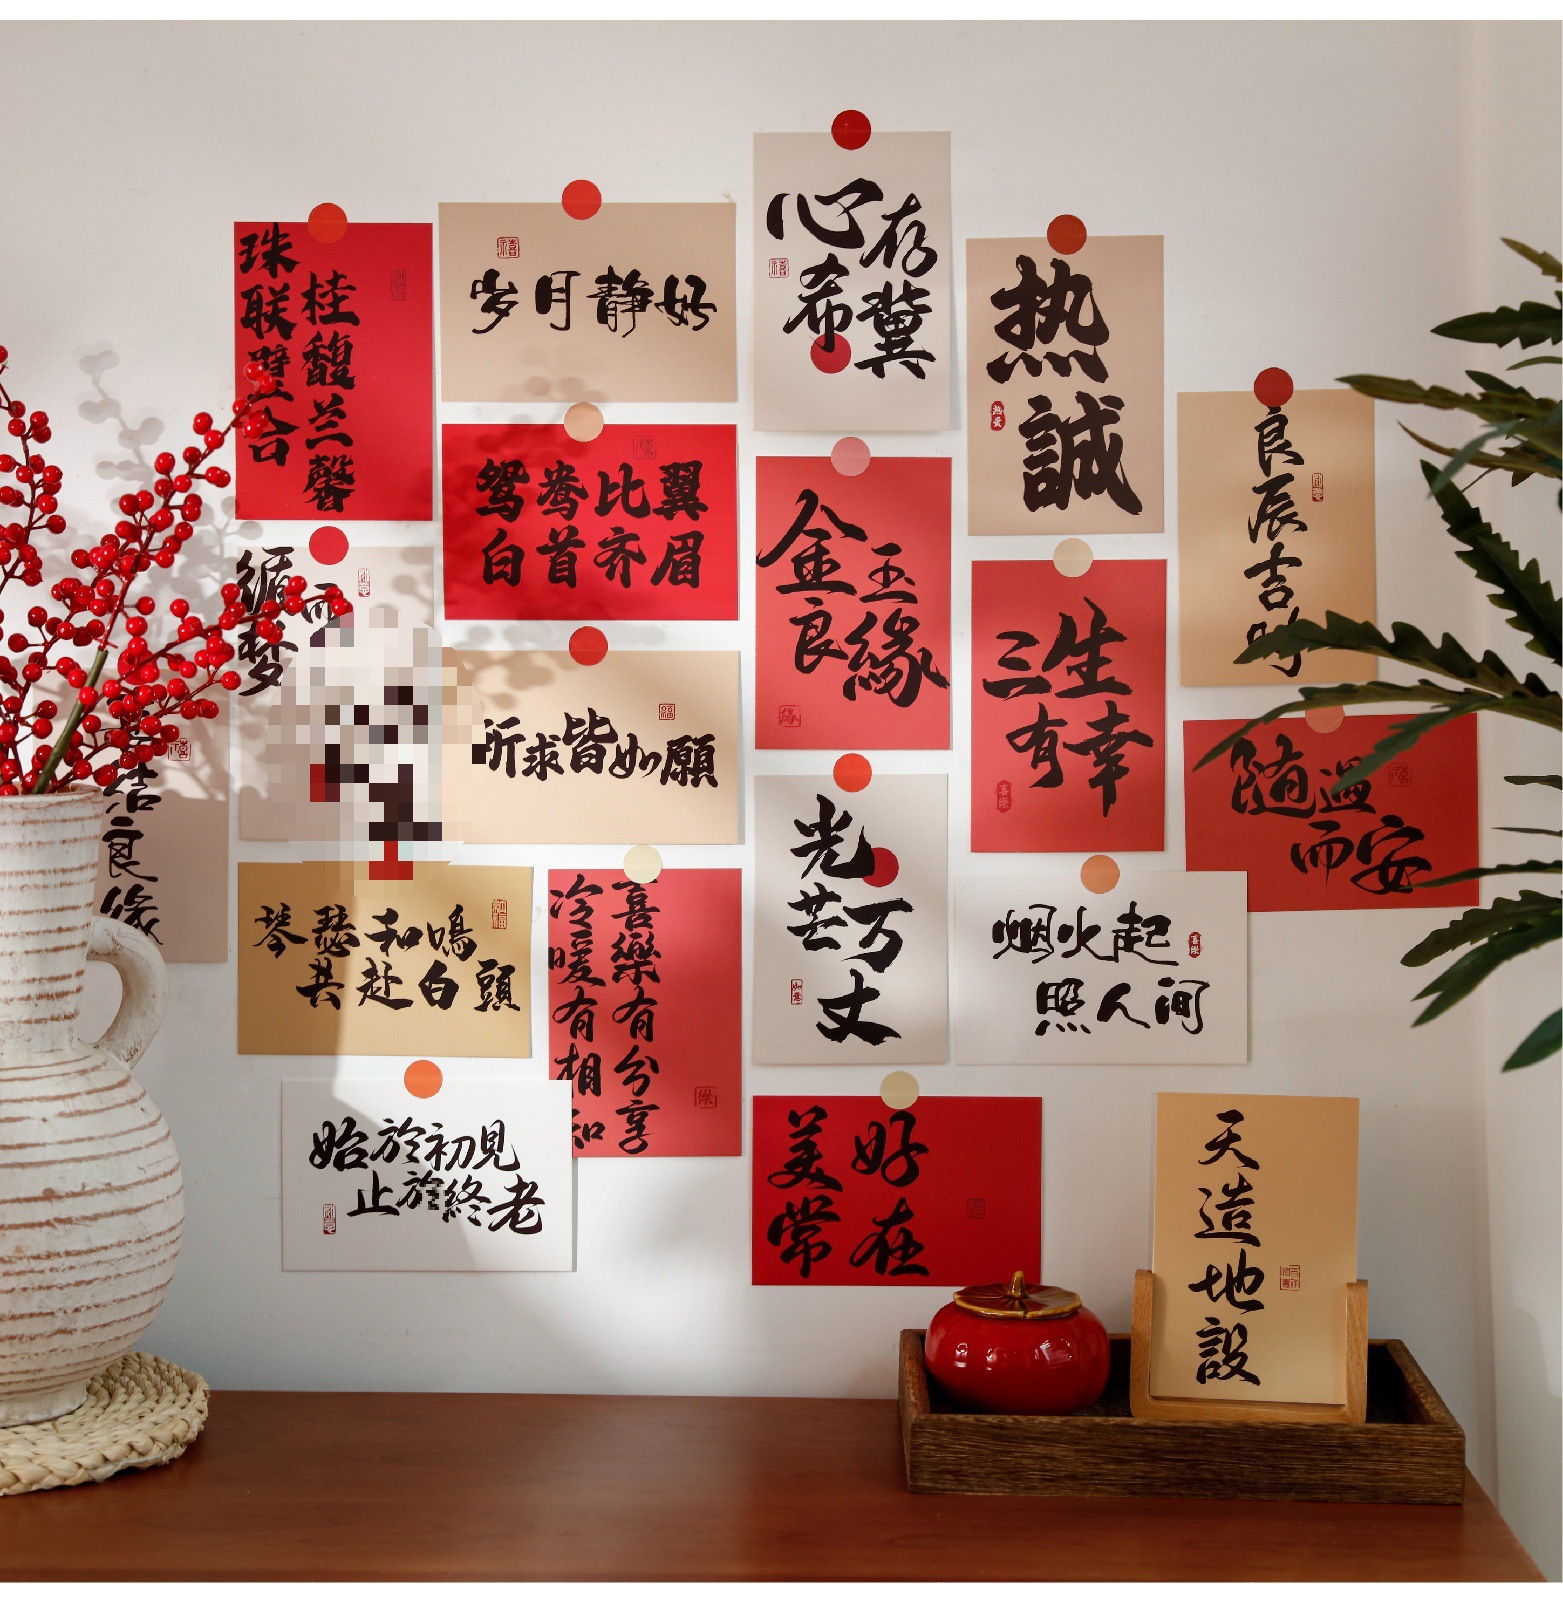 珠联璧合
桂馥兰馨
岁月静好
心存
希冀
热
誠
良辰吉
鸳鸯比翼
白首齐眉
金玉
良緣
三生
有幸
随遇
而安
循梦
而
所求皆如願
结良缘
琴瑟和鳴
共赴白頭
冷暖有相知
喜樂有分享
光
芒万
丈
烟火起
照人间
始於初見
止於終老
美好
常在
天造地設